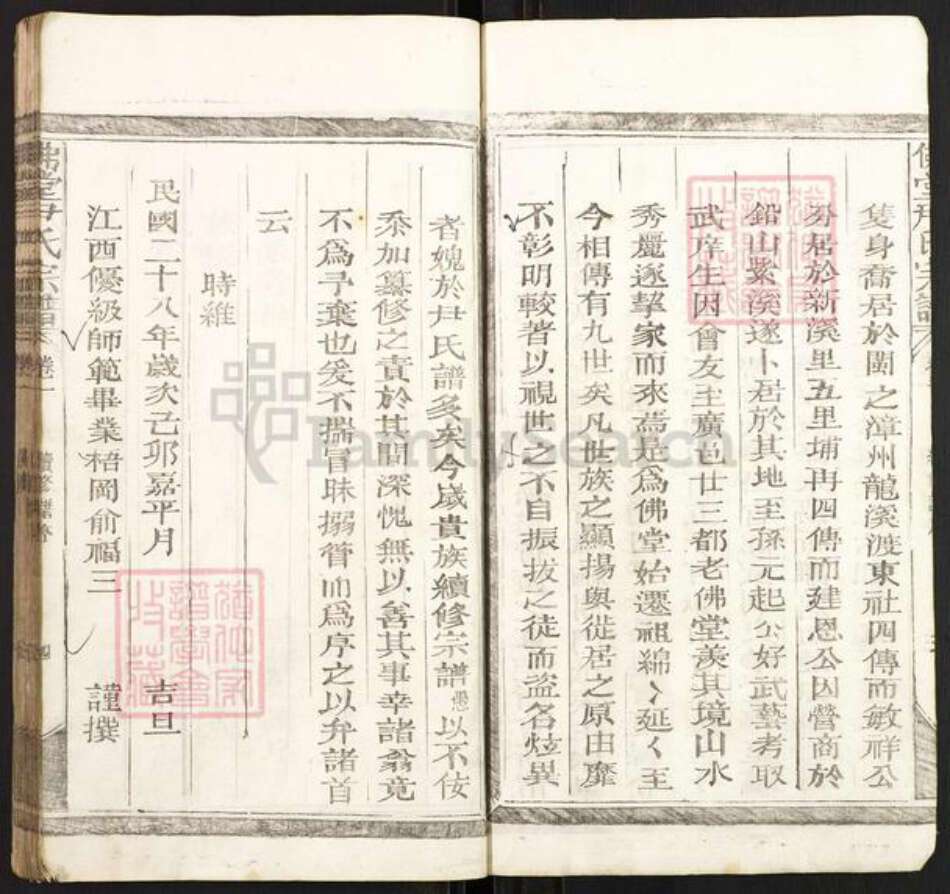 隻身喬居於閩之漳州龍溪渡東社四傳而敏祥公
居於新溪里五里埔再四傳而建恩公因營商於
鉛山紫溪遂卜居於其地至孫元起公好武藝考取
武庠生因會友至廣邑廿三都老佛堂羨其境山水
秀麗遂挈家而來焉是爲佛堂始遷祖綿〻延〻至
今相傳有九世矣凡世族之顯揚與徙居之原由靡
不彰明較著以視世之不自振拔之徒而盜名炫異
者媿於尹氏譜多矣今歲貴族續修宗譜愚以不佞
忝加纂修之責於其間深愧無以善其事幸諸翁竟
不爲予棄也爰不揣冒昧搦管而爲序之以弁諸首
云
時維
民國二十八年歲次己卯嘉平月 吉旦
江西優級師範畢業梧岡俞福三 謹撰
佛堂尹氏宗譜 卷
FamilySearch